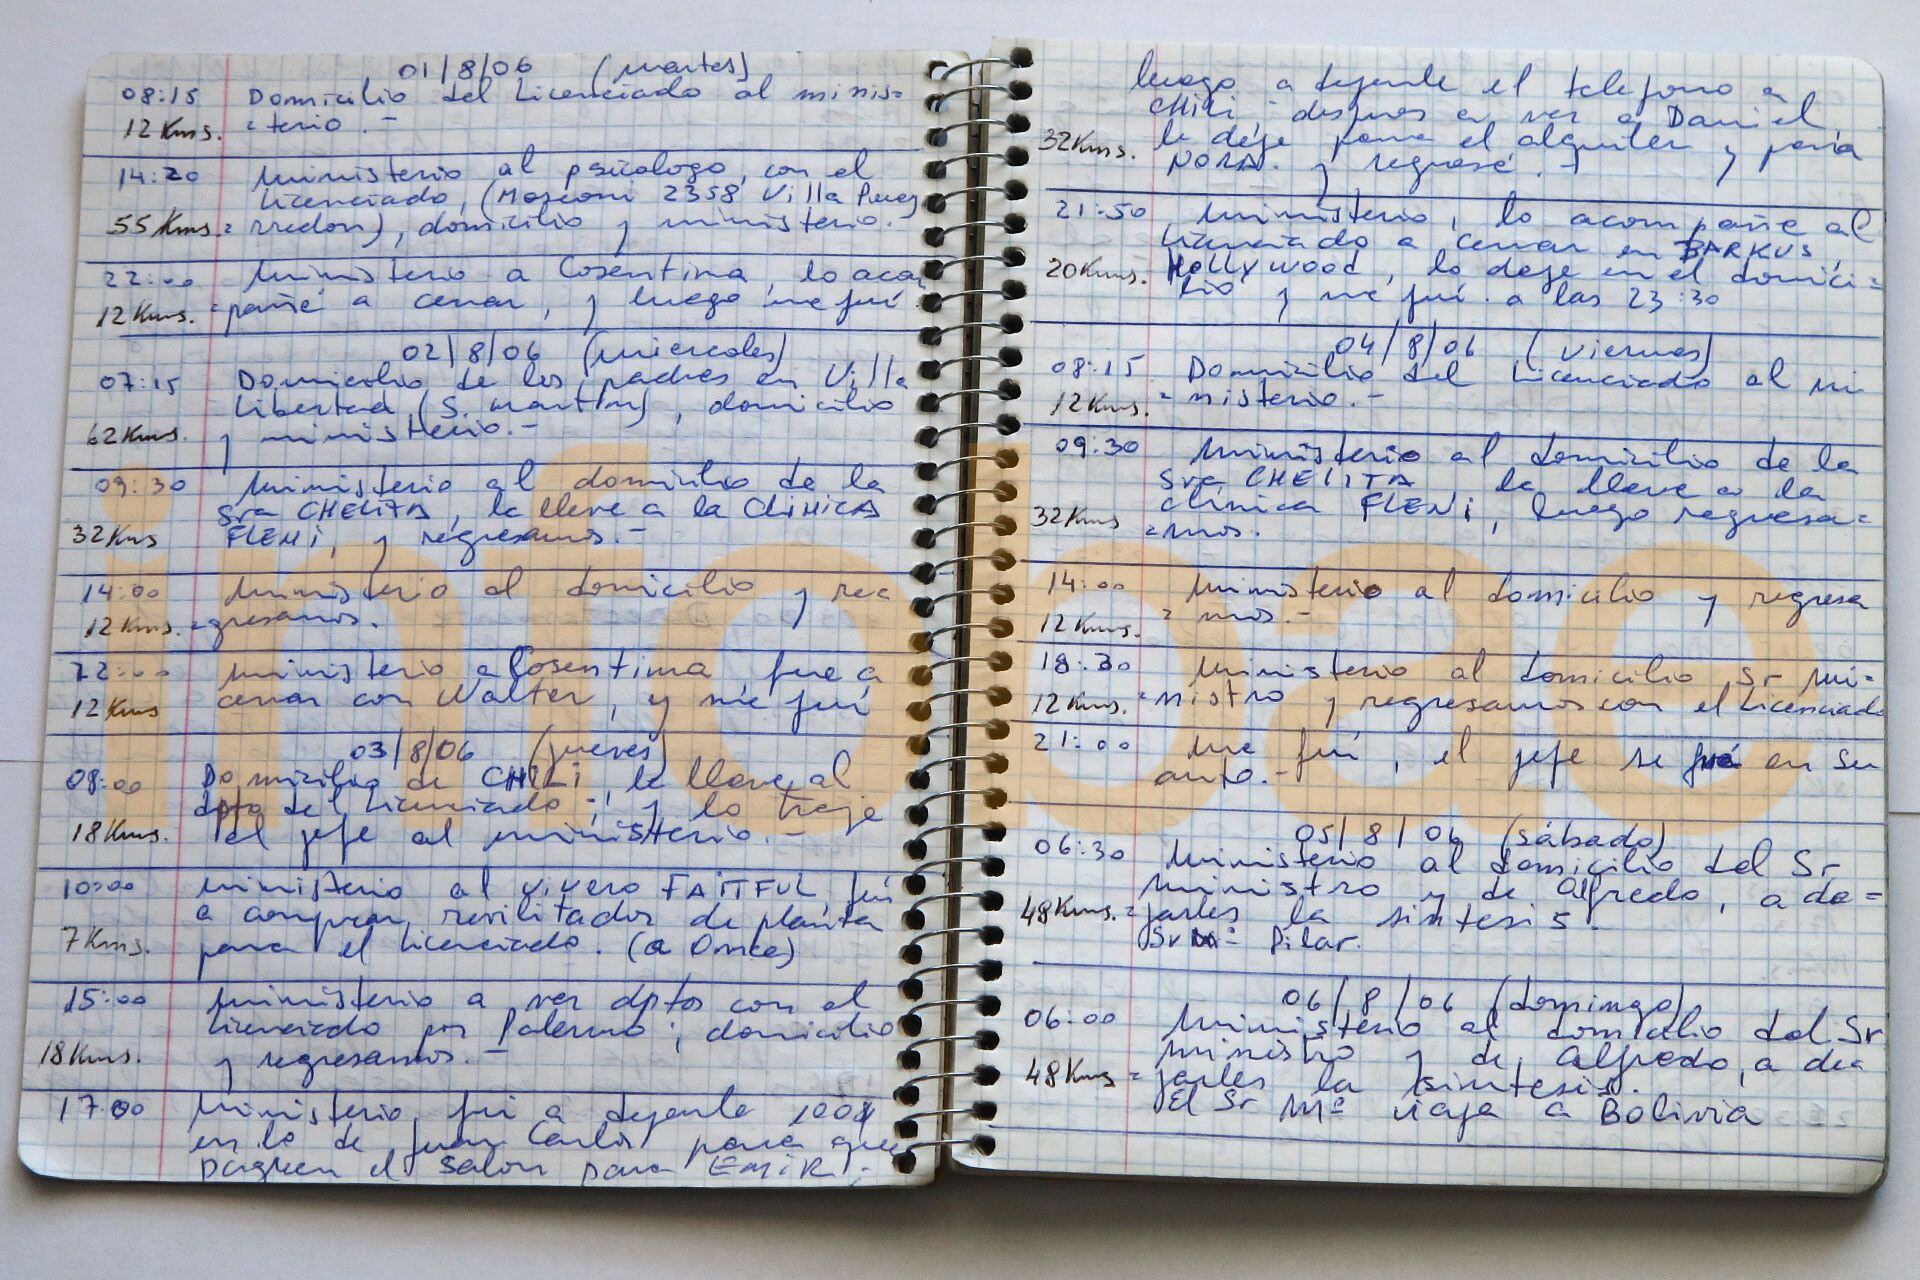 01/8/06 (martes)
08:15 Domicilio del Licenciado al minis-
12 Kms. =terio.-
14:20 Ministerio al psicologo, con el
Licenciado, (Mosconi 2358 Villa Puey
55 Kms. =rredon), domicilio y ministerio.
22:00 Ministerio a Cosentina, lo acom
12 Kms. =pañé a cenar, y luego me fuí
02/8/06 (miercoles)
07:15 Domicilio de los padres en Villa
Libertad, (S. Martín), domicilio
62 Kms. y ministerio.-
09:30 Ministerio al domicilio de la
Sra CHELITA, la lleve a la CLINICA
32 Kms FLENI, y regresamos.-
14:00 Ministerio al domicilio y re
12 Kms. =gresamos.
22:00 Ministerio a Cosentina, fue a
12 Kms cenar con Walter, y me fuí
03/8/06 (jueves)
08:00 Domicilio de CHILI, la lleve al
dpto del Licenciado, y lo traje
18 Kms. al jefe al ministerio.-
10:00 Ministerio al vivero FAITFUL, fuí
a comprar, revilitador de planta
7 Kms. para el Licenciado. (a Once)
15:00 Ministerio a ver dptos con el
Licenciado por Palermo; domicilio
18 Kms. y regresamos.-
17:00 Ministerio, fuí a dejarle 100$
en lo de Juan Carlos para que
paguen el salón para EMIR;
luego a dejarle el telefono a
CHILI, despues a ver a Daniel,
32 Kms. le déje para el alquiler y para
NORA. y regresé.-
21:50 Ministerio, lo acompañe al
Licenciado a cenar en BARKUS,
20 Kms. Hollywood, lo deje en el domici=
lio y me fuí a las 23:30
04/8/06 (viernes)
08:15 Domicilio del Licenciado al mi
12 Kms. =nisterio.-
09:30 Ministerio al domicilio de la
Sra CHELITA la lleve a la
32 Kms clínica FLENI, luego regresa=
=mos.
14:00 Ministerio al domicilio y regresa
12 Kms. =mos.-
18:30 Ministerio al domicilio Sr Mi-
12 Kms. =nistro y regresamos con el Licenciado
21:00 Me fuí, el jefe se fué en su
auto.-
05/8/06 (sábado)
06:30 Ministerio al domicilio del Sr
Ministro y de Alfredo, a de=
48 Kms. =jarles la sintesis.
Sr Mº Pilar.
06/8/06 (domingo)
06:00 Ministerio al domicilio del Sr
Ministro y de Alfredo, a de=
48 Kms =jarles la sintesis.
El Sr Mº viaja a BOLIVIA
infobae